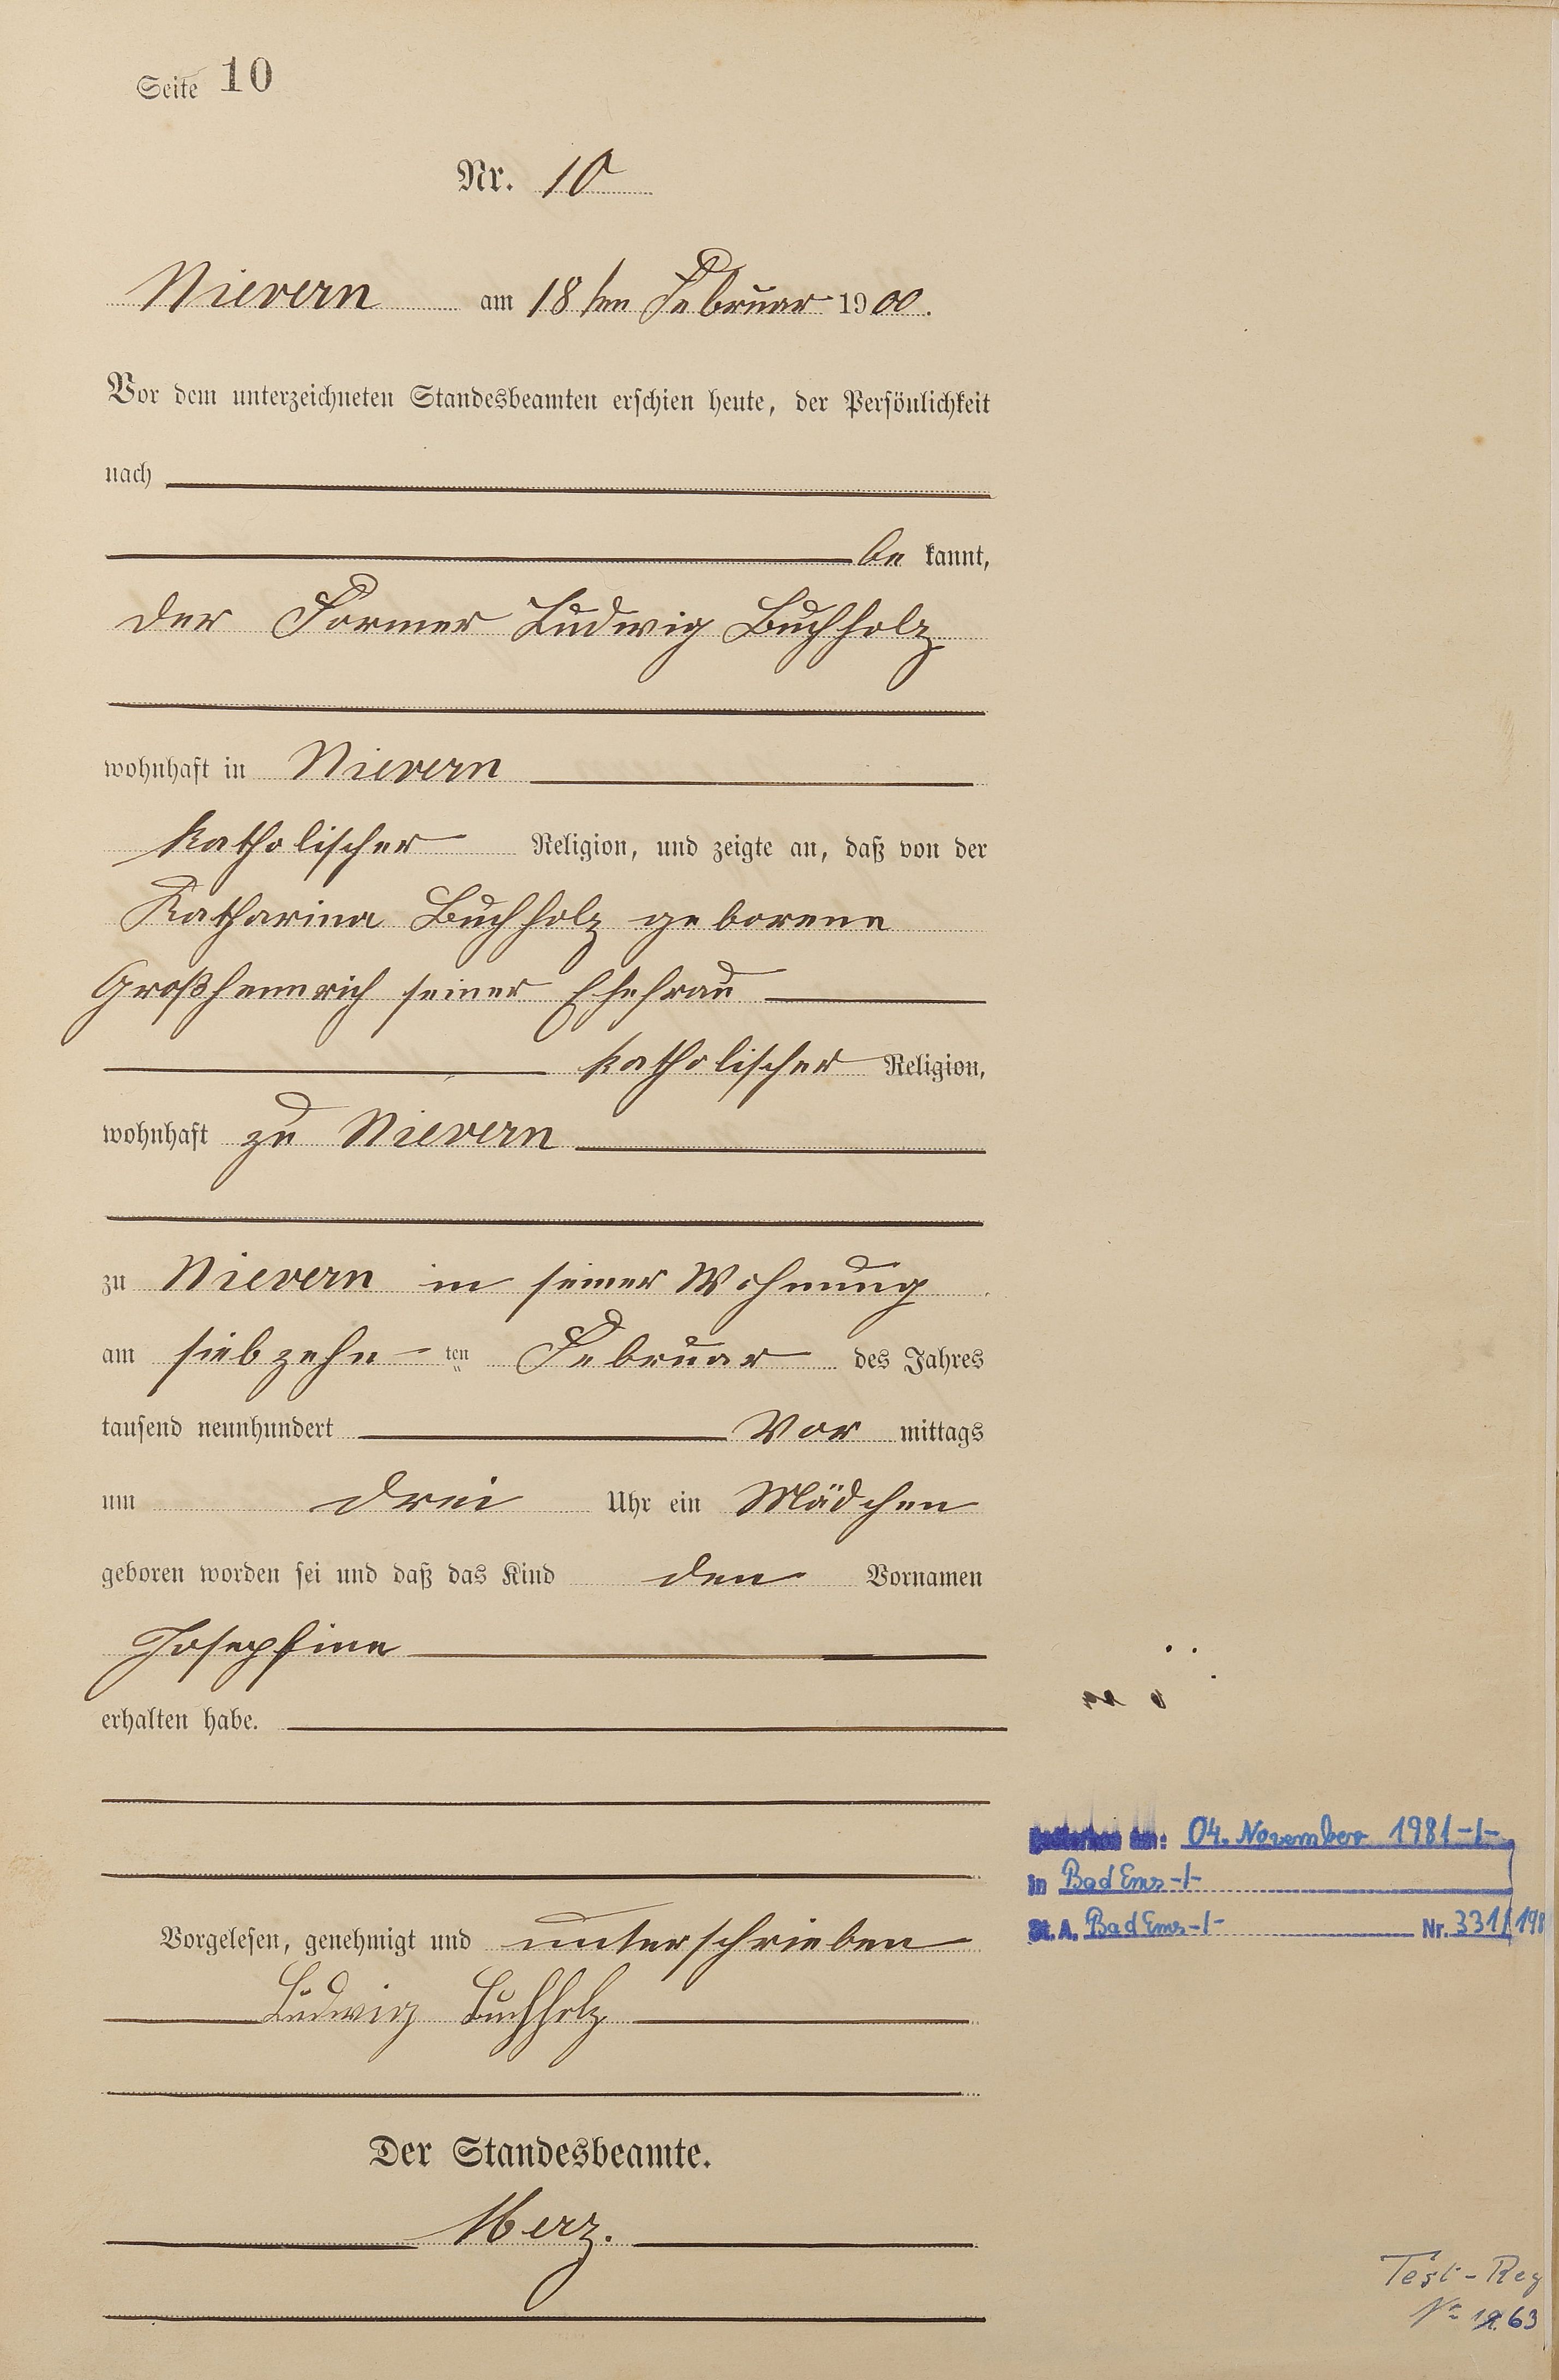 Seite 10
Nr. 10
Nievern am 18ten Februar 1900.
Vor dem unterzeichneten Standesbeamten erschien heute, der Persönlichkeit
nach
be kannt,
der Former Ludwig Buchholz
wohnhaft in Nievern
katholischer Religion, und zeigte an, daß von der
Katharina Buchholz geborene
Großhennrich seiner Ehefrau
katholischer Religion,
wohnhaft zu Nievern
zu Nievern in seiner Wohnung
am siebzehn ten Februar des Jahres
tausend neunhundert Vor mittags
um drei Uhr ein Mädchen
geboren worden sei und daß das Kind den Vornamen
Josephine
erhalten habe.
Vorgelesen, genehmigt und unterschrieben
Ludwig Buchholz
Der Standesbeamte.
Merz.
am: 04. November 1981-/-
in Bad Ems-/-
St. A. Bad Ems-/- Nr. 331/198
Test-Reg
No 63